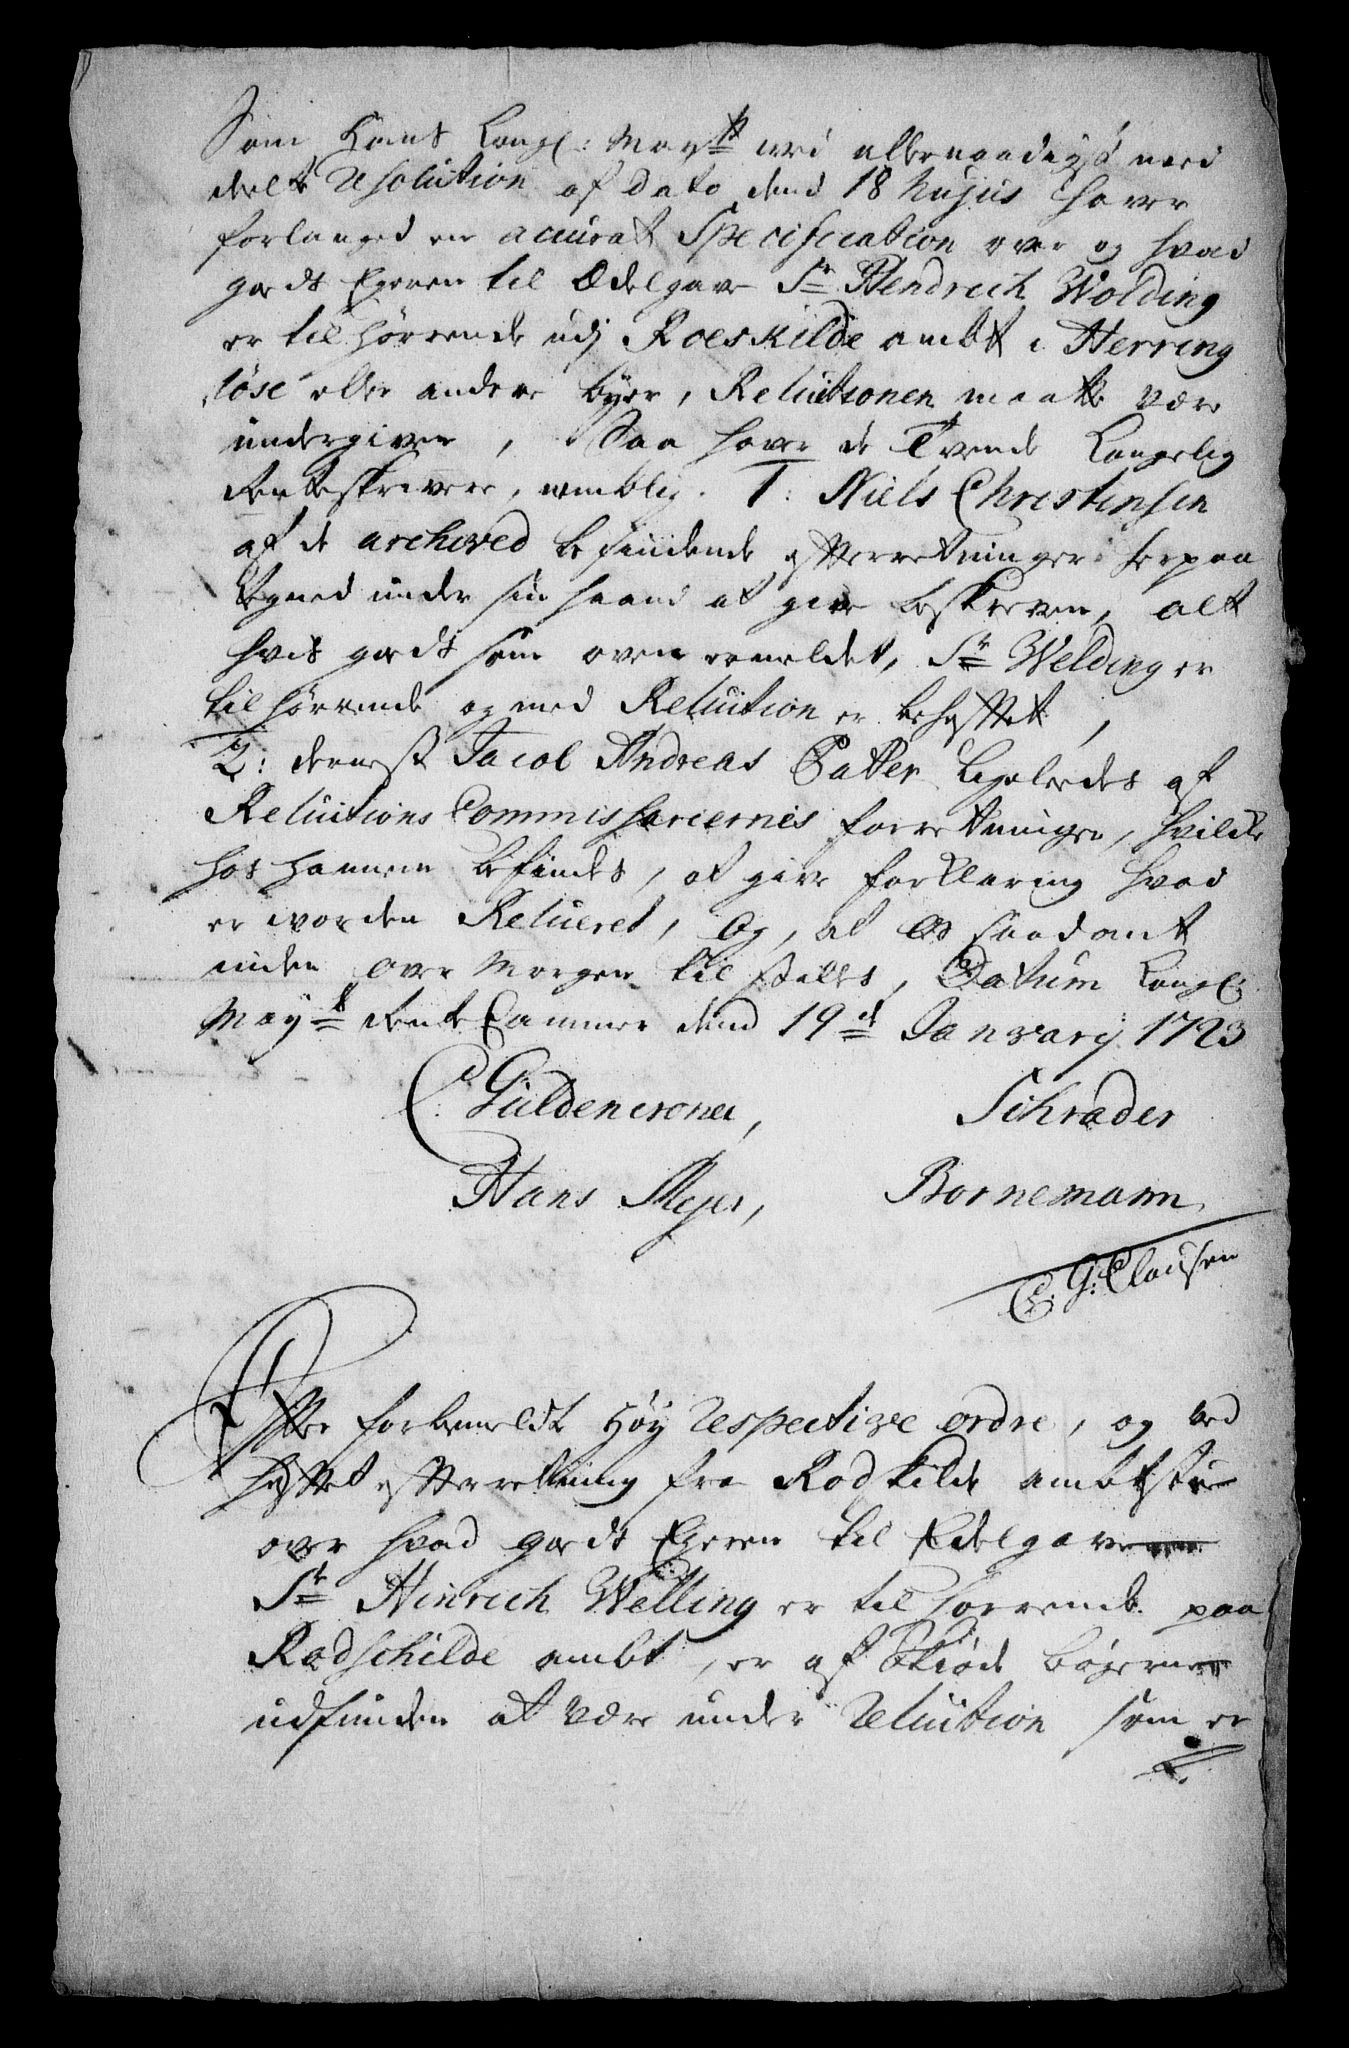 Som Hans Kongl: May:ts ved allernaadigst med
deelte Resolution af Dato dend 18 hujus haver
forlanged en accurat Specification over og hvad
gods Eyeren til Ædelgave Sr Hendrich Wolding
er tilhørrende udj Roeskilde ambt i Herring
løse eller andere byer, Reluitionen maatte være
undergiven, Saa haver de Tvende Kongelig
Renteskrivere, nemblig. 1: Niels Christensen
af de archived befindende efterretninger herpaa
tegned under sin haand at give beskreven, alt
hvis gods som oven ermeldet, Sr Welding er
tilhørrende og med Reluition er behæfftet,
2: dernest Jacob Andreas Patter ligeledes af
Reluitions Commissariernes forretninger, hvilcke
hos hannem befindes, at give forklaring hvad
er worden Relueret, Og, at os saadant
inden over Morgen tilstilles, Datum Kongl:
May:ts Rente Cammer dend 19de Janvarij 1723
C: Güldencrone, Schrader
Hans Meyer, Bornemann
C. G: Clausen
Efter forbemeldte Høy Respective ordre, og ved
hæfftet efterretning fra Rodskilde ambtstue
over hvad gods Eyeren til Edelgave
Sr Hinrich Welling er tilhørrende paa
Rodschilde ambt, er af Skiøde bøgerne
udfunden at være under Reluition som er